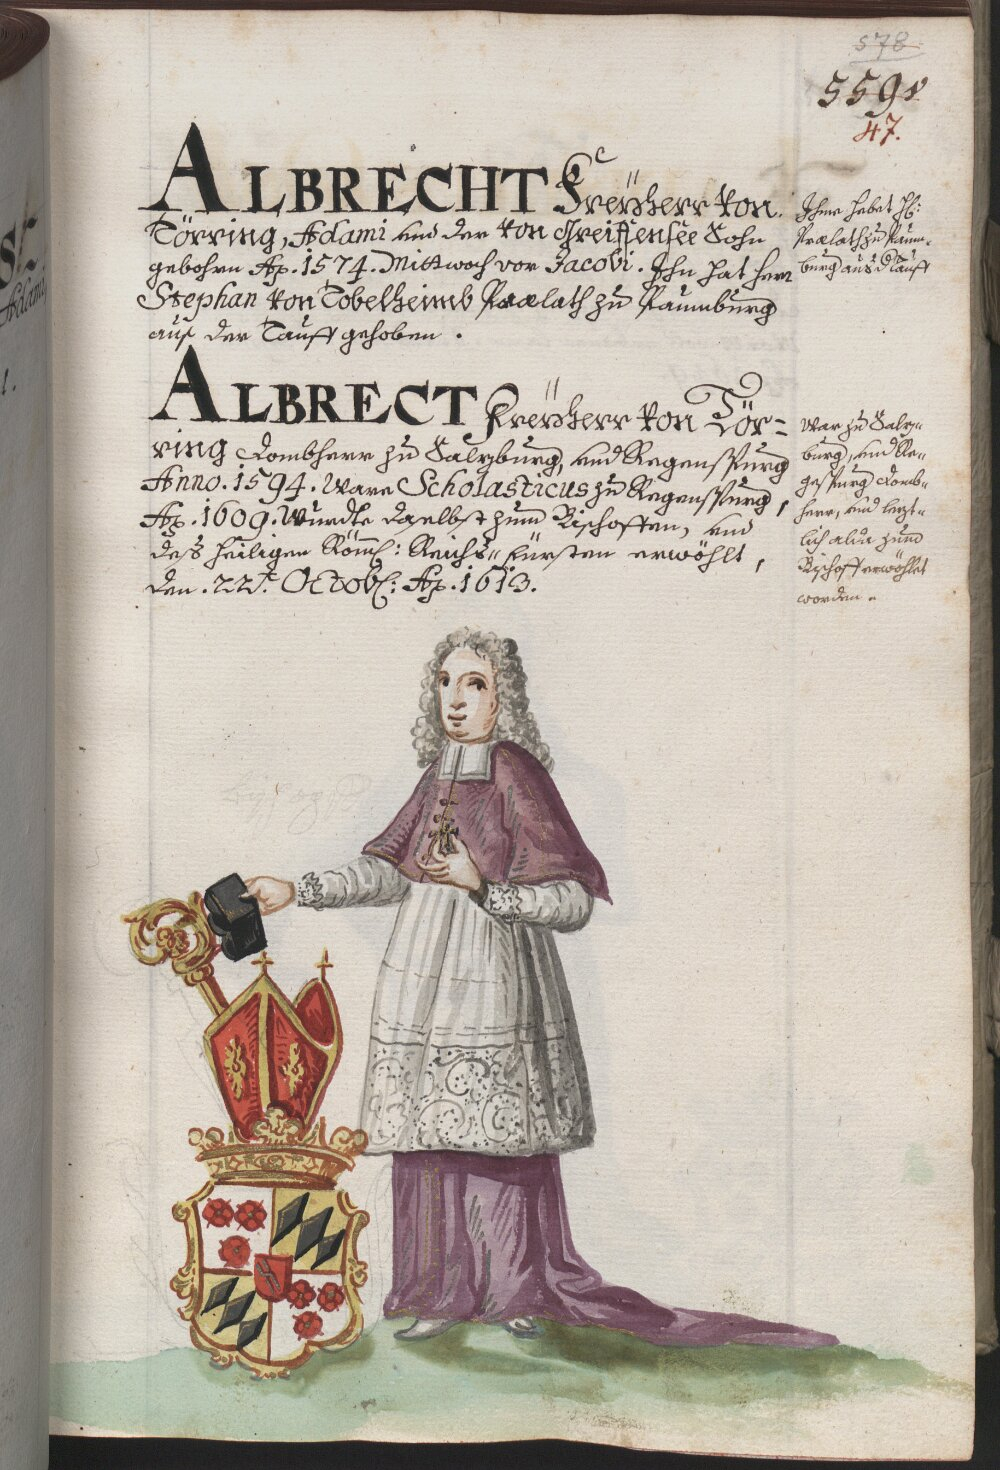 578
559v
47.
ALBRECHT Freÿherr von
Törring, Adami und der von Greiffensee Sohn
gebohrn Aō. 1574. Mittwoch vor Jacobi. Ihn hat herr
Stephan von Tobelheimb Prælath zu Paumburg
aus der Tauff gehoben.
Ihme hebet H:
Prælath zu Paum-
burg aus d Tauff
ALBRECT Freÿherr von Tör=
ring Dombherr zu Salzburg, und Regenspurg
Anno. 1594. Ware Scholasticus zu Regenspurg,
Aō. 1609. Wurdte daselbst zum Bischoffen, und
des heiligen Römȝ: Reichs= fürsten erwöhlt,
den. 22t. Octobȝ: Aō. 1613.
War zu Salz=
burg, und Re=
gespurg Domb=
herr, und letzt=
lich alda zum
Bischoff erwöhlet
worden.